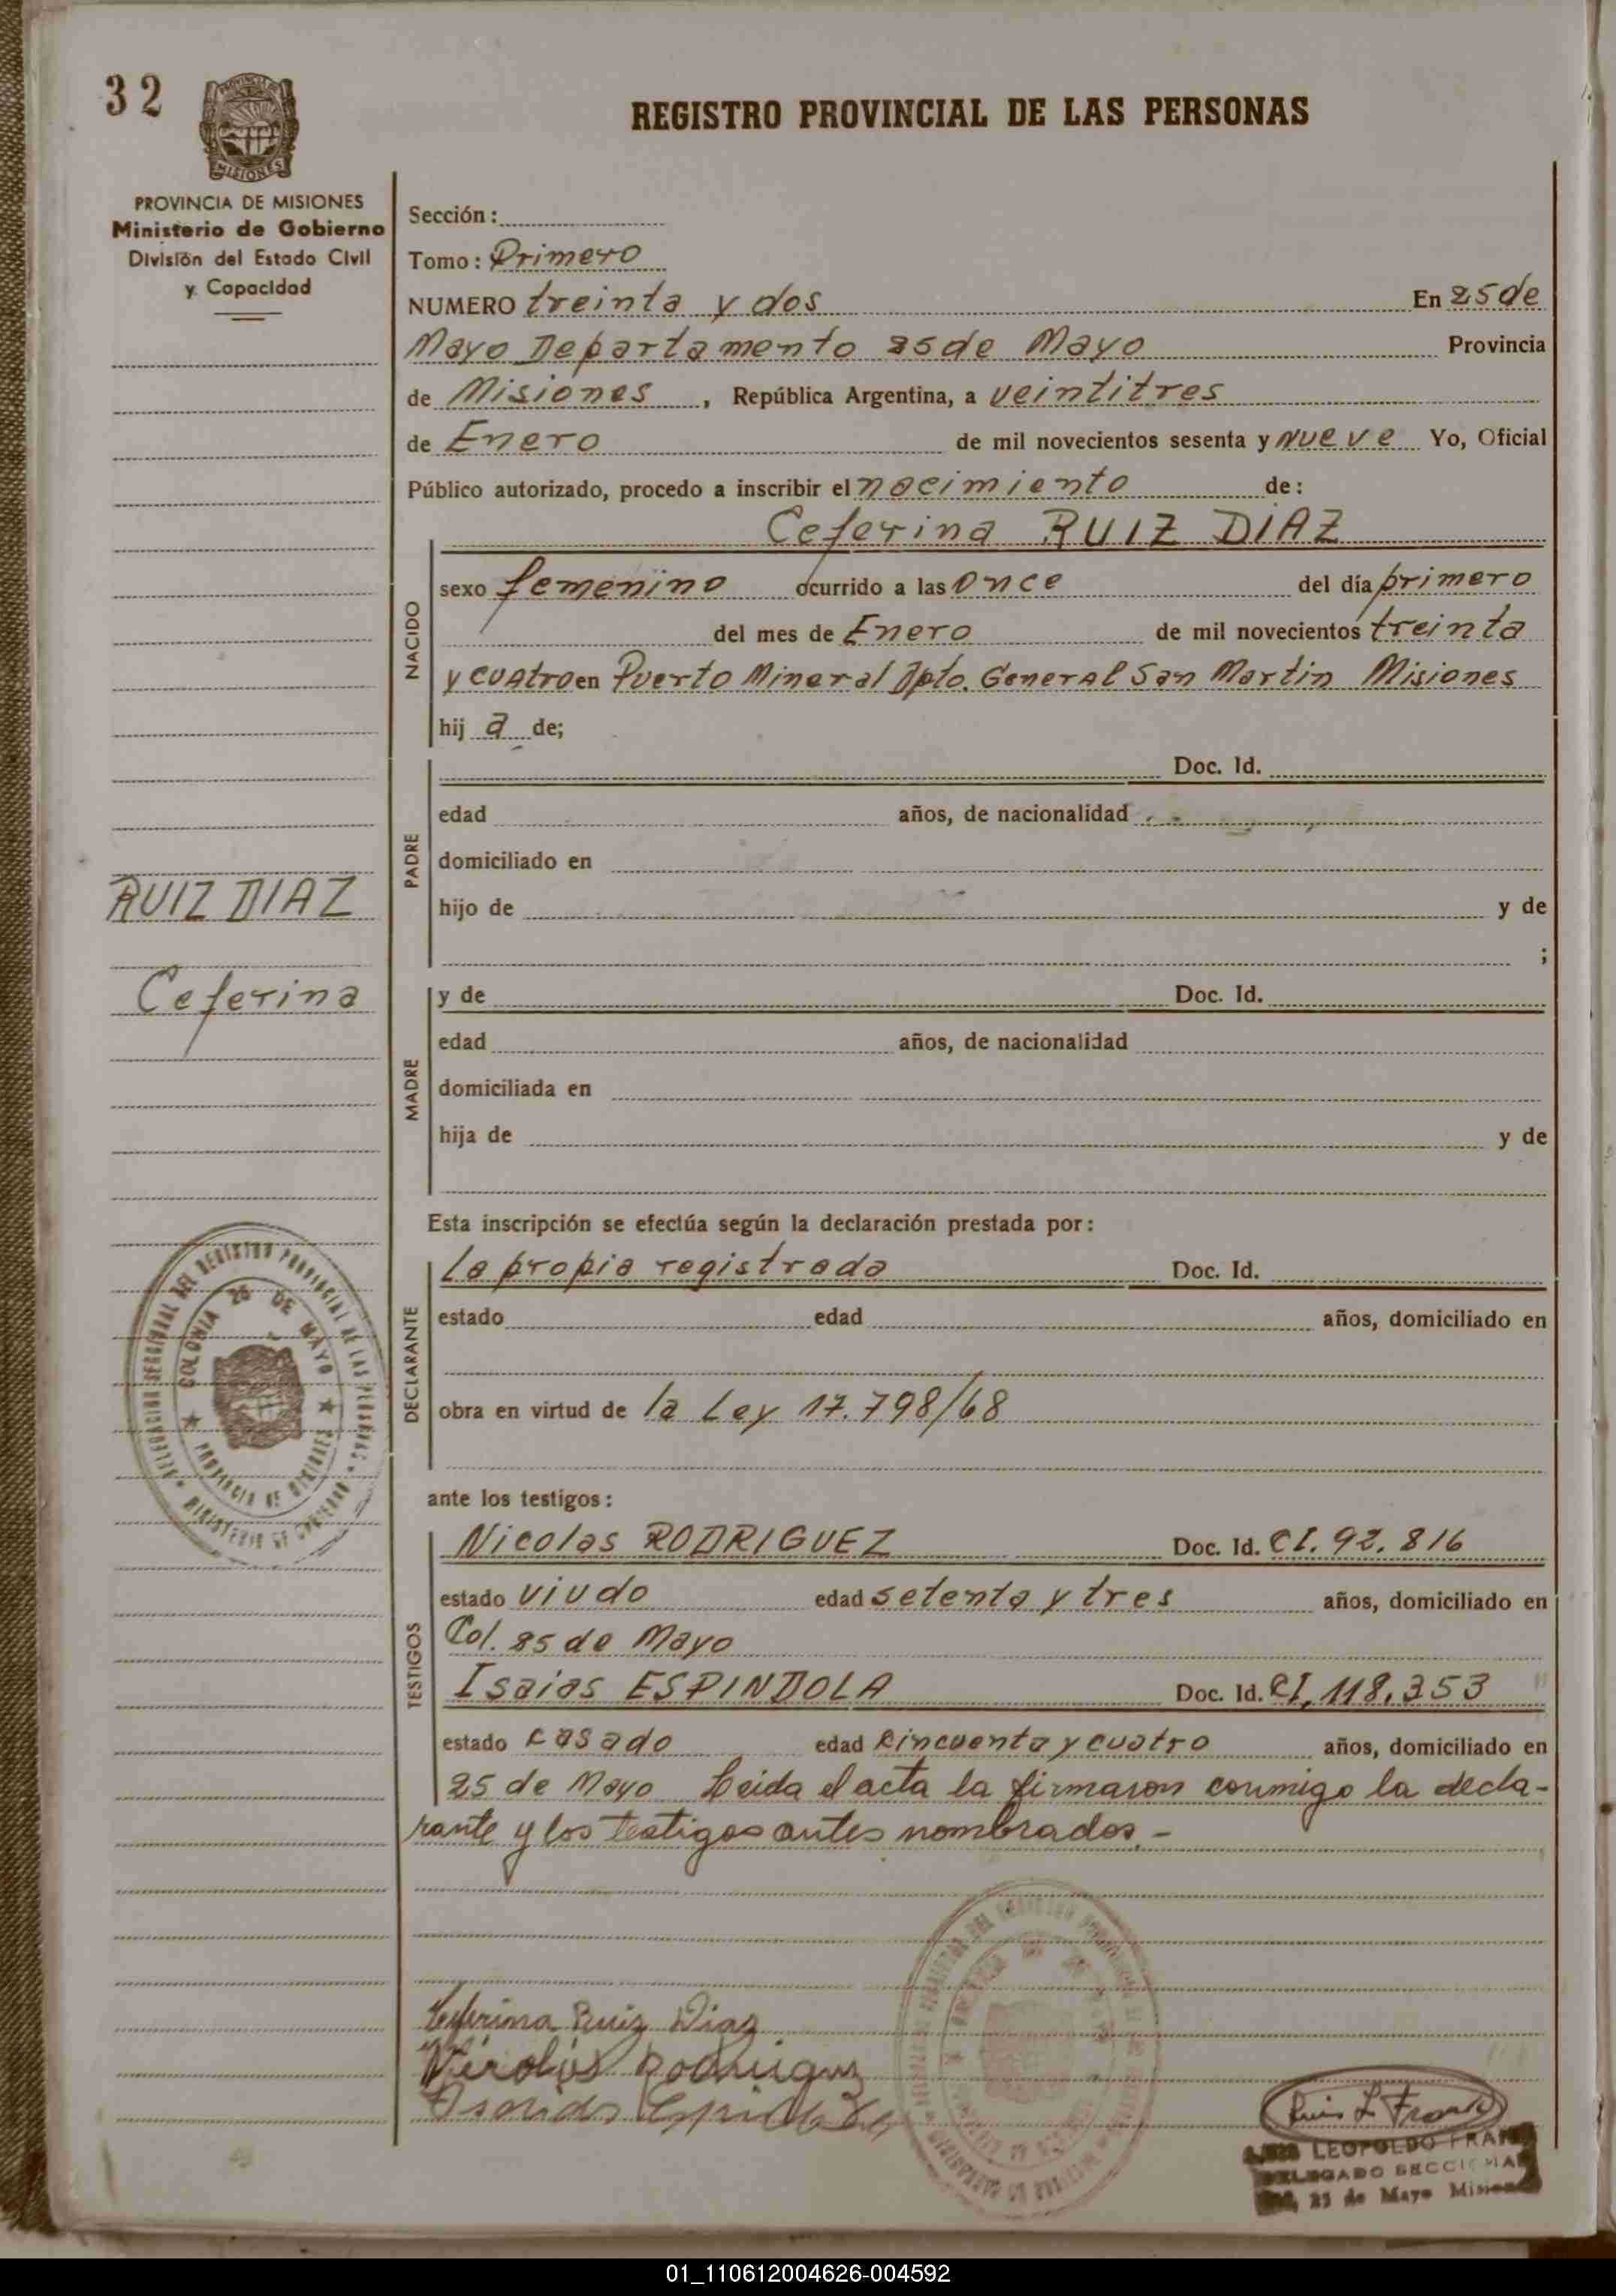 32
PROVINCIA DE MISIONES
REGISTRO PROVINCIAL DE LAS PERSONAS
PROVINCIA DE MISIONES
Ministerio de Gobierno
División del Estado Civil
y Capacidad
Sección:
Tomo: Primero
NUMERO treinta y dos En 25 de
Mayo Departamento 25 de Mayo Provincia
de Misiones, República Argentina, a veintitres
de Enero de mil novecientos sesenta y nueve Yo, Oficial
Público autorizado, procedo a inscribir el nacimiento de:
Ceferina RUIZ DIAZ
NACIDO
sexo femenino ocurrido a las once del día primero
del mes de Enero de mil novecientos treinta
y cuatro en Puerto Mineral Dpto. General San Martin Misiones
hij a de;
PADRE
Doc. Id.
edad años, de nacionalidad
domiciliado en
hijo de y de
;
RUIZ DIAZ
Ceferina
MADRE
y de Doc. Id.
edad años, de nacionalidad
domiciliada en
hija de y de
Esta inscripción se efectúa según la declaración prestada por:
DECLARANTE
La propia registrada Doc. Id.
estado edad años, domiciliado en
obra en virtud de la Ley 17.798/68
DELEGACION SECCIONAL DEL REGISTRO PROVINCIAL DE LAS PERSONAS
MINISTERIO DE GOBIERNO
COLONIA 25 DE MAYO
PROVINCIA DE MISIONES
ante los testigos:
TESTIGOS
Nicolas RODRIGUEZ Doc. Id. CI. 92.816
estado viudo edad setenta y tres años, domiciliado en
Col. 25 de Mayo
Isaias ESPINDOLA Doc. Id. CI. 118.353
estado casado edad cincuenta y cuatro años, domiciliado en
25 de Mayo Leida el acta la firmaron conmigo la decla-
rante y los testigos antes nombrados.-
Ceferina Ruiz Diaz
Nicolás Rodriguez
Luis L Frank
LEOPOLDO FRANK
DELEGADO SECCIONAL
25 de Mayo Misiones
01_110612004626-004592